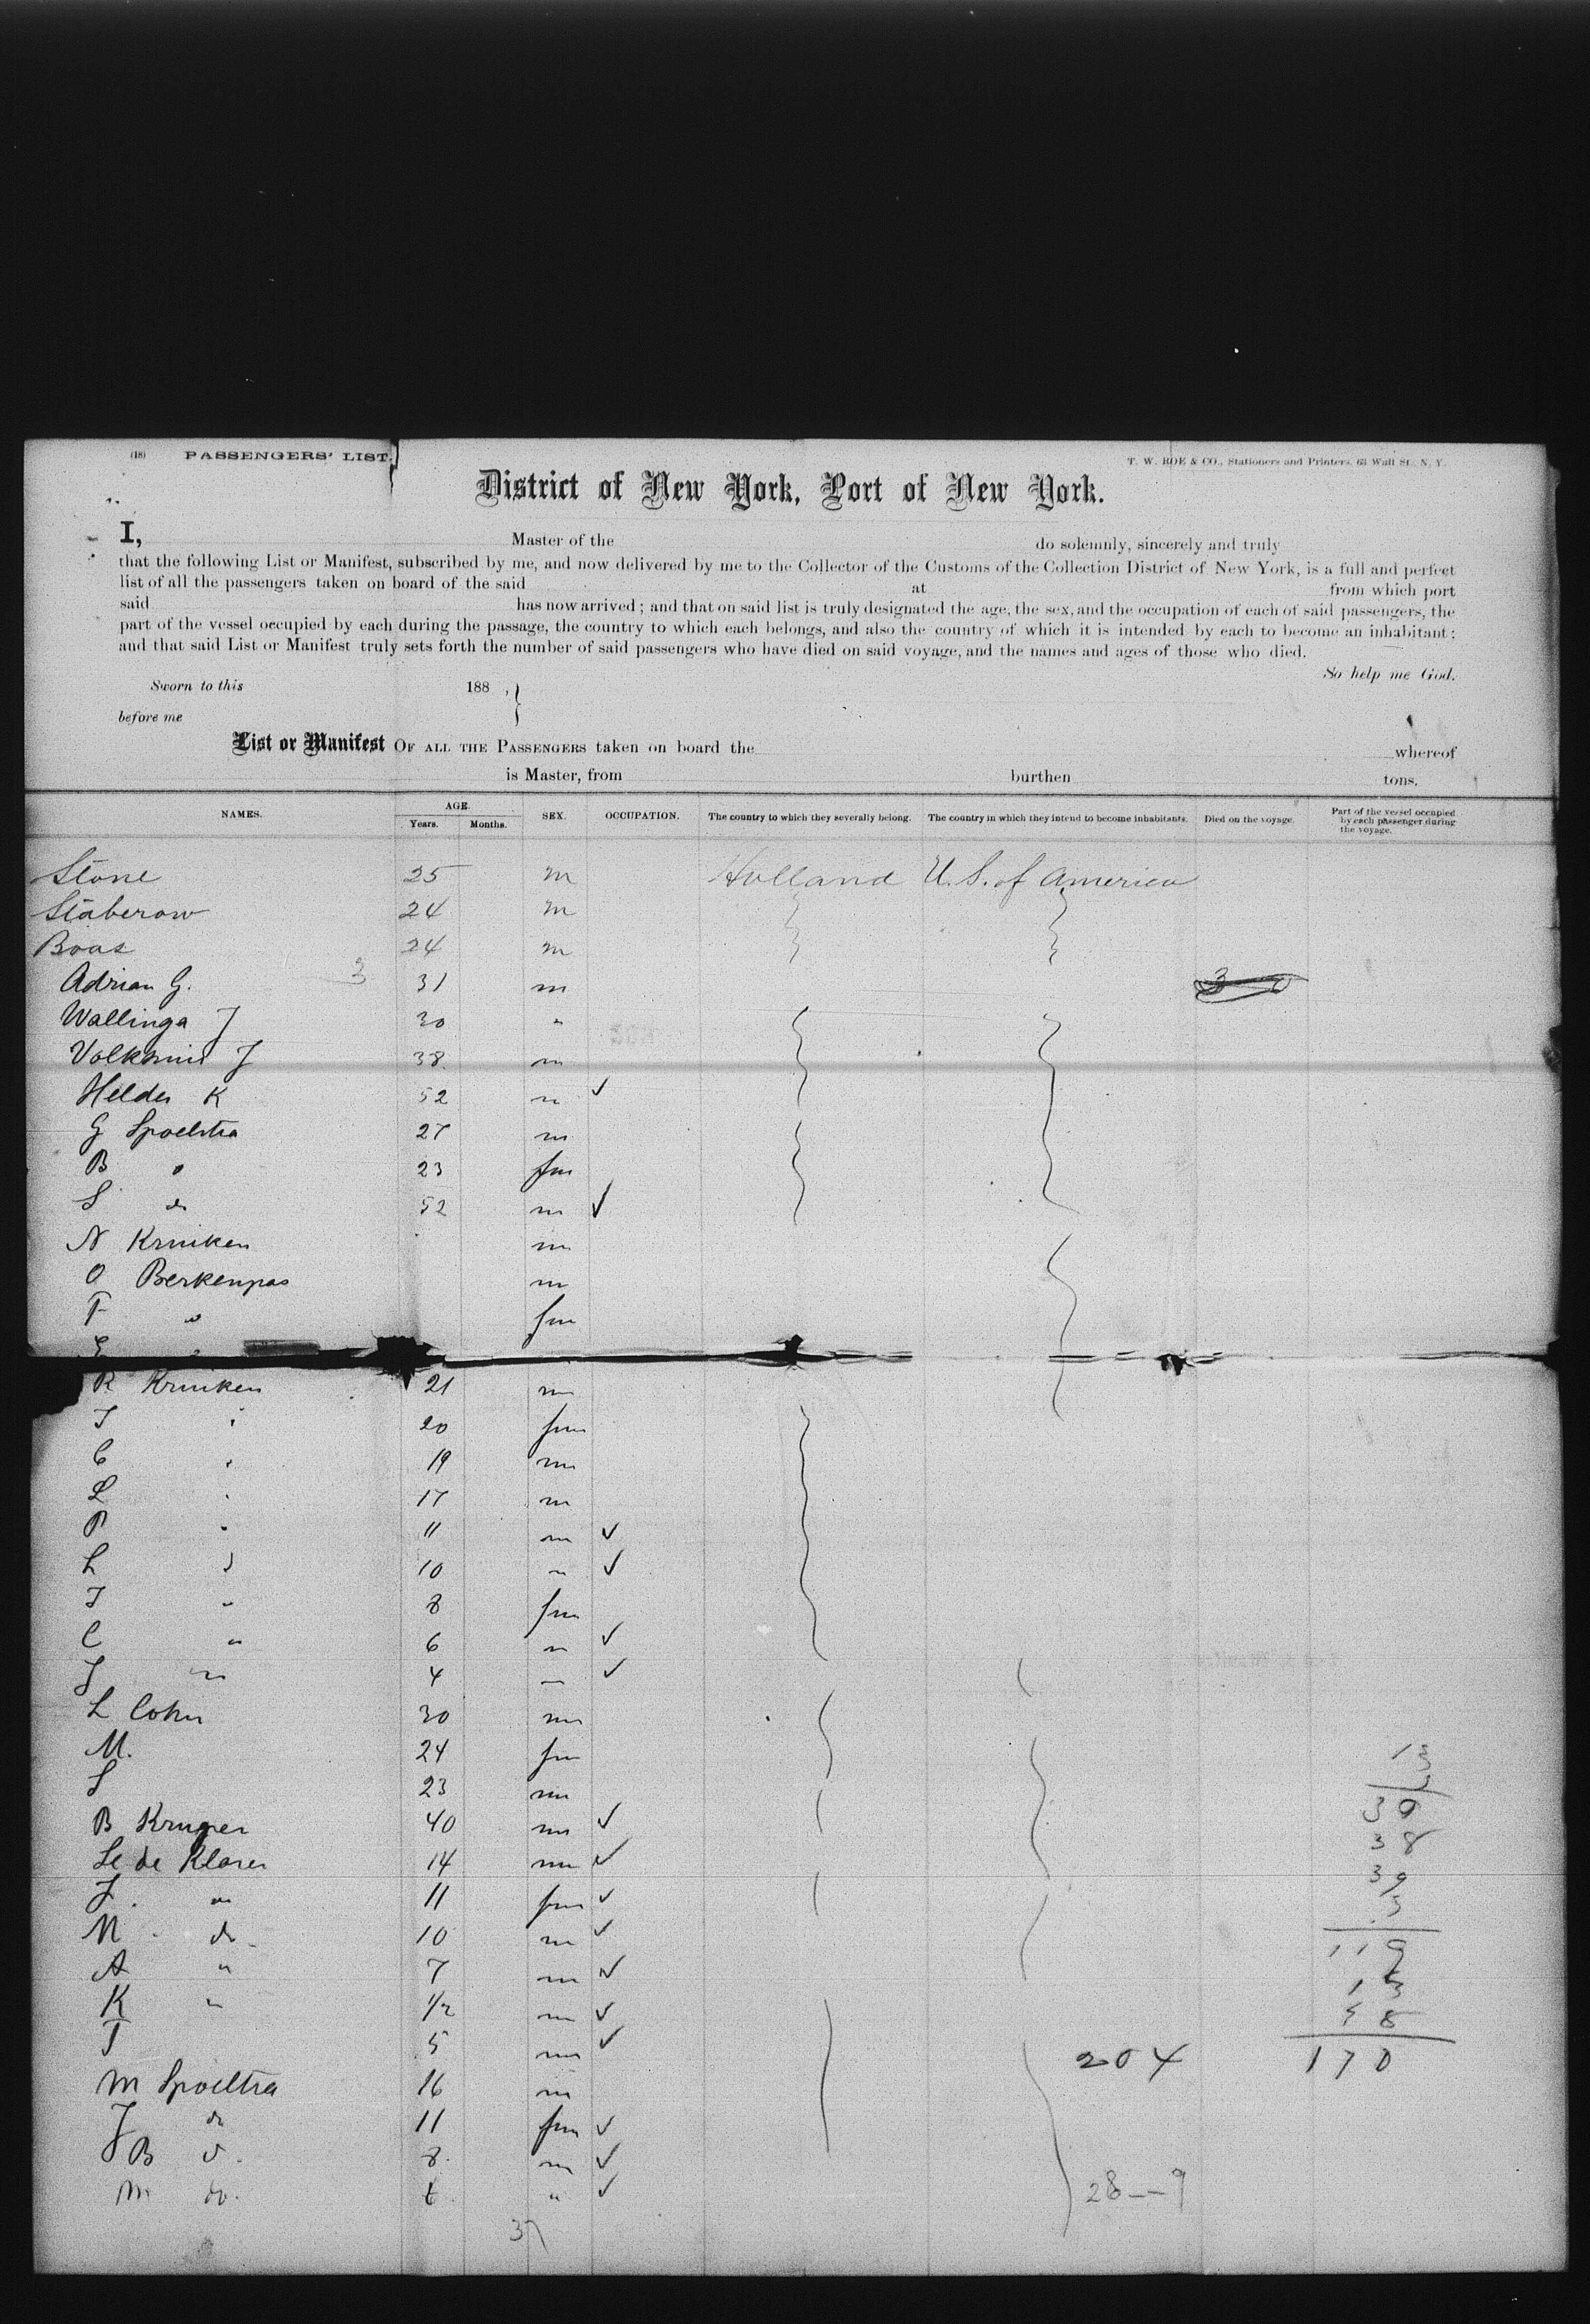 (18) PASSENGERS' LIST.
T. W. ROE & CO., Stationers and Printers, 63 Wall St., N. Y.
District of New York, Port of New York.
I, Master of the do solemnly, sincerely and truly
that the following List or Manifest, subscribed by me, and now delivered by me to the Collector of the Customs of the Collection District of New York, is a full and perfect
list of all the passengers taken on board of the said at from which port
said has now arrived; and that on said list is truly designated the age, the sex, and the occupation of each of said passengers, the
part of the vessel occupied by each during the passage, the country to which each belongs, and also the country of which it is intended by each to become an inhabitant;
and that said List or Manifest truly sets forth the number of said passengers who have died on said voyage, and the names and ages of those who died.
So help me God.
Sworn to this 188 ,
before me
List or Manifest OF ALL THE PASSENGERS taken on board the whereof
is Master, from burthen tons.
NAMES. AGE. Years. Months. SEX. OCCUPATION. The country to which they severally belong. The country in which they intend to become inhabitants. Died on the voyage. Part of the vessel occupied by each passenger during the voyage.
Stone 25 m Holland U. S. of America
Staberow 24 m
Boas 24 m
Adrian G. 3 31 m 3
Wallinga J 30 "
J 38 m
Helder K 52 m ✓
G Spoelstra 27 m
B " 23 fm
S do 52 m ✓
N Kruiken m
O Berkenpas m
F " fm
R Kruiken 21 m
J " 20 fm
C " 19 m
L " 17 m
P " 11 m ✓
L " 10 " ✓
J " 8 fm
C " 6 m ✓
J " 4 " ✓
L Cohn 30 m
M. 24 fm
S 23 m
B Kruger 40 m ✓
Le de Klarer 14 m ✓
J. " 11 fm ✓
N. do 10 m ✓
A " 7 m ✓
K " 1/2 m ✓
J 5 m ✓
M Spoelstra 16 m
J do 11 fm ✓
B " 8 m ✓
M do. 6 " ✓
37
13
3
39
38
39
3
119
13
38
204 170
28--9